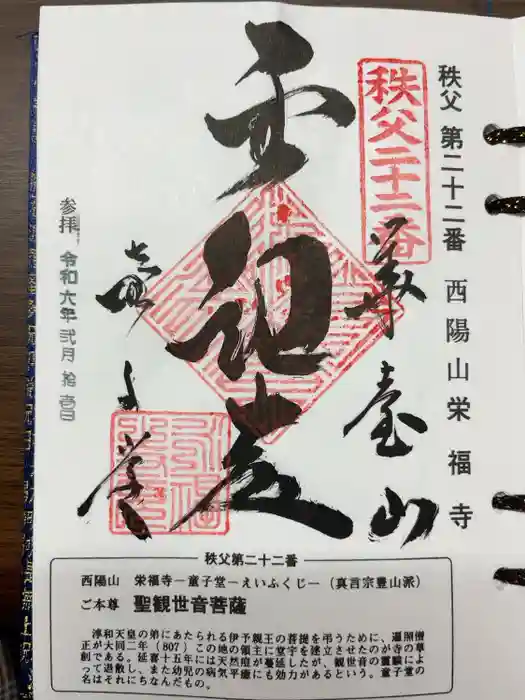 秩父 第二十二番 西陽山栄福寺
秩父二十二番
華臺山
童子堂
参拝 令和六年 弐月 拾壱日
秩父第二十二番
西陽山 栄福寺－童子堂－えいふくじ－(真言宗豊山派)
ご本尊 聖観世音菩薩
淳和天皇の弟にあたられる伊予親王の菩提を弔うために、遍照僧
正が大同二年(807)この地の領主に堂宇を建立させたのが寺の草
創である。延喜十五年には天然痘が蔓延したが、観世音の霊験によ
って退散し、また幼児の病気平癒にも効力があるという。童子堂の
名はそれにちなんだもの。